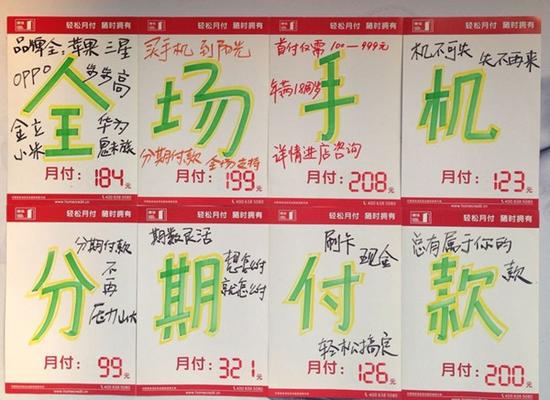 轻松月付 随时拥有
品牌全:苹果 三星
OPPO 步步高
全
金立 华为
小米 魅族
月付:184元
www.homecredit.cn 400 638 5080
轻松月付 随时拥有
买手机 到阳光
场
分期付款 全场支持
月付:199元
400 638 5080
轻松月付 随时拥有
首付仅需100—999元
年满18周岁
手
详情进店咨询
月付:208元
400 638 5080
轻松月付 随时拥有
机不可失 失不再来
机
月付:123元
400 638 5080
轻松月付 随时拥有
分期付款
不
再
压力山大
分
月付:99元
400 638 5080
轻松月付 随时拥有
期数灵活
想怎么付
就怎么付
期
月付:321元
400 638 5080
轻松月付 随时拥有
刷卡 现金
付
轻松搞定
月付:126元
400 638 5080
轻松月付 随时拥有
总有属于你的
款
款
月付:200元
www.homecredit.cn 400 638 5080